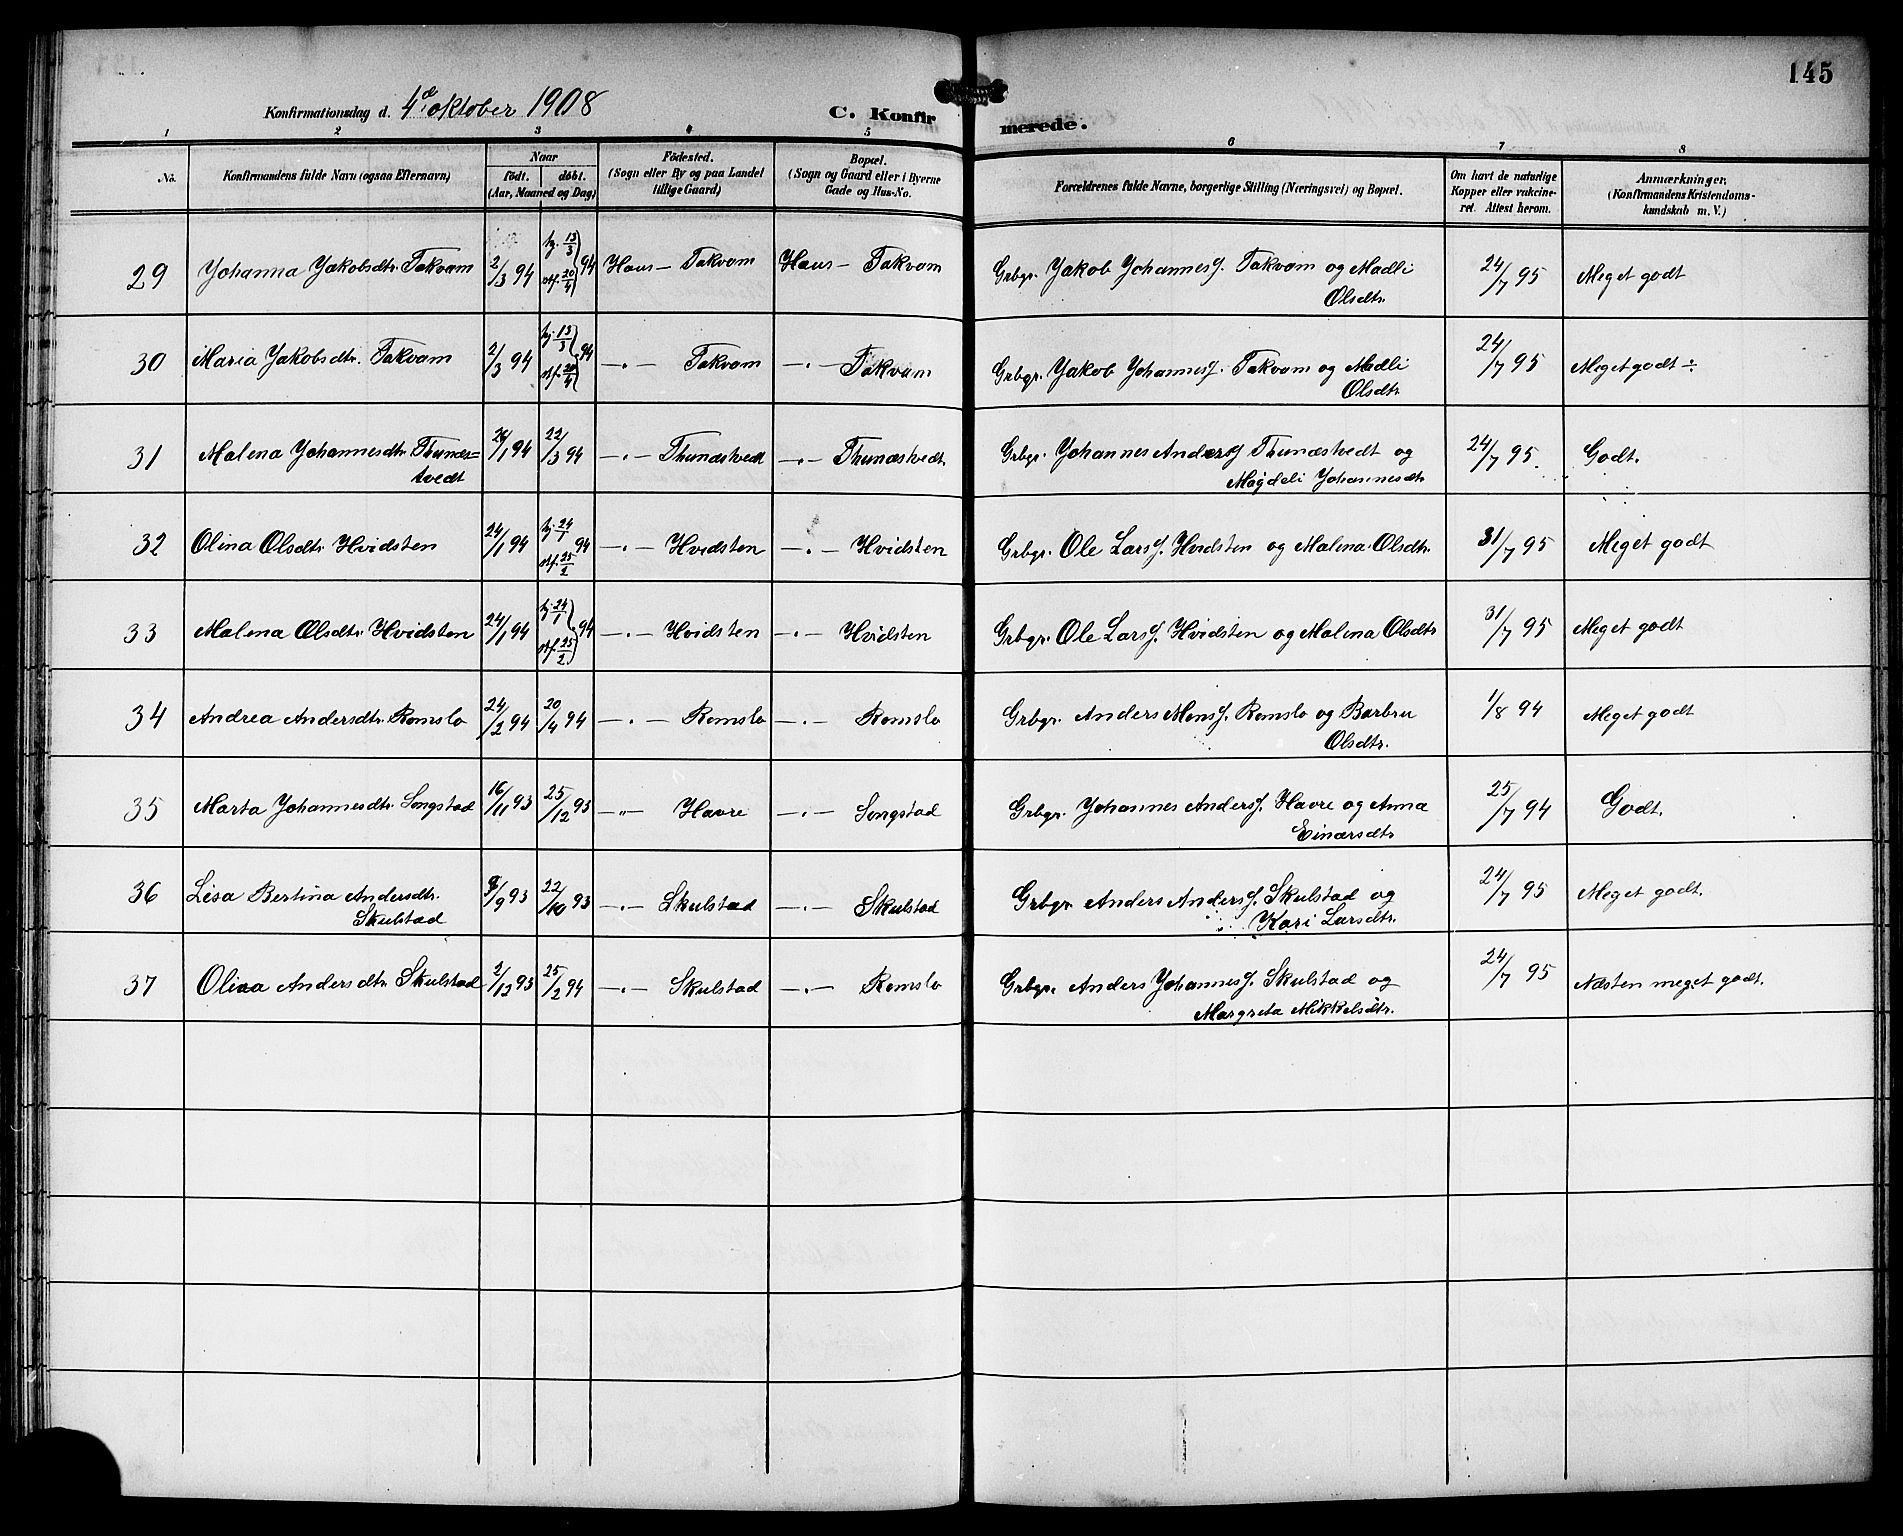 145
Konfirmationsdag d. 4de oktober 1908
C. Konfirmerede.
1 2 3 4 5 6 7 8
No. Konfirmandens fulde Navn (ogsaa Efternavn) Naar födt. döbt. (Aar, Maaned og Dag) Födested. (Sogn eller By og paa Landet tillige Gaard) Bopæl. (Sogn og Gaard eller i Byerne Gade og Hus-No. Forældrenes fulde Navne, borgerlige Stilling (Næringsvei) og Bopæl. Om havt de naturlige Kopper eller vakcineret. Attest herom. Anmærkninger. (Konfirmandens Kristendomskundskab m. V.)
29 Johanna Jakobsdtr. Takvam 2/3 94 hj. 13/3 st. 20/4 94 Haus — Takvam Haus — Takvam Grbgr. Jakob Johannes. Takvam og Madli Olsdtr. 24/7 95 Meget godt
30 Maria Jakobsdtr. Takvam 2/3 94 hj. 13/3 st. 20/4 94 —„— Takvam —„— Takvam Grbgr. Jakob Johannes. Takvam og Madli Olsdtr. 24/7 95 Meget godt ÷
31 Malena Johannesdtr. Thunæs=tvedt 26/1 94 22/3 94 —„— Thunæstvedt —„— Thunæstvedt Grbgr. Johannes Anders. Thunæstvedt og Magdeli Johannesdtr. 24/7 95. Godt.
32 Olina Olsdtr. Hvidsten 24/1 94 hj. 24/1 st. 25/2 94 —„— Hvidsten —„— Hvidsten Grbgr. Ole Lars. Hvidsten og Malena Olsdtr. 31/7 95 Meget godt
33 Malena Olsdtr. Hvidsten 24/1 94 hj. 24/1 st. 25/2 94 —„— Hvidsten —„— Hvidsten Grbgr. Ole Lars. Hvidsten og Malena Olsdtr 31/7 95 Meget godt
34 Andrea Andersdtr. Romslo 24/2 94 20/4 94 —„— Romslo —„— Romslo Grbgr. Anders Mons. Romslo og Barbru Olsdtr. 1/8 94 Meget godt
35 Marta Johannesdtr. Songstad 16/11 93 25/12 93 —„— Havre —„— Songstad Grbgr. Johannes Anders. Havre og Anna Einarsdtr. 25/7 94 Godt.
36 Lisa Bertina Andersdtr. Skulstad /9 93 22/10 93 —„— Skulstad —„— Skulstad Grbgr. Anders Anders. Skulstad og Kari Larsdtr. 24/7 95 Meget godt.
37 Olina Andersdtr. Skulstad 2/12 93 25/2 94 —„— Skulstad —„— Romslo Grbgr. Anders Johannes. Skulstad og Margreta Mikkelsdtr. 24/7 95 Næsten meget godt.